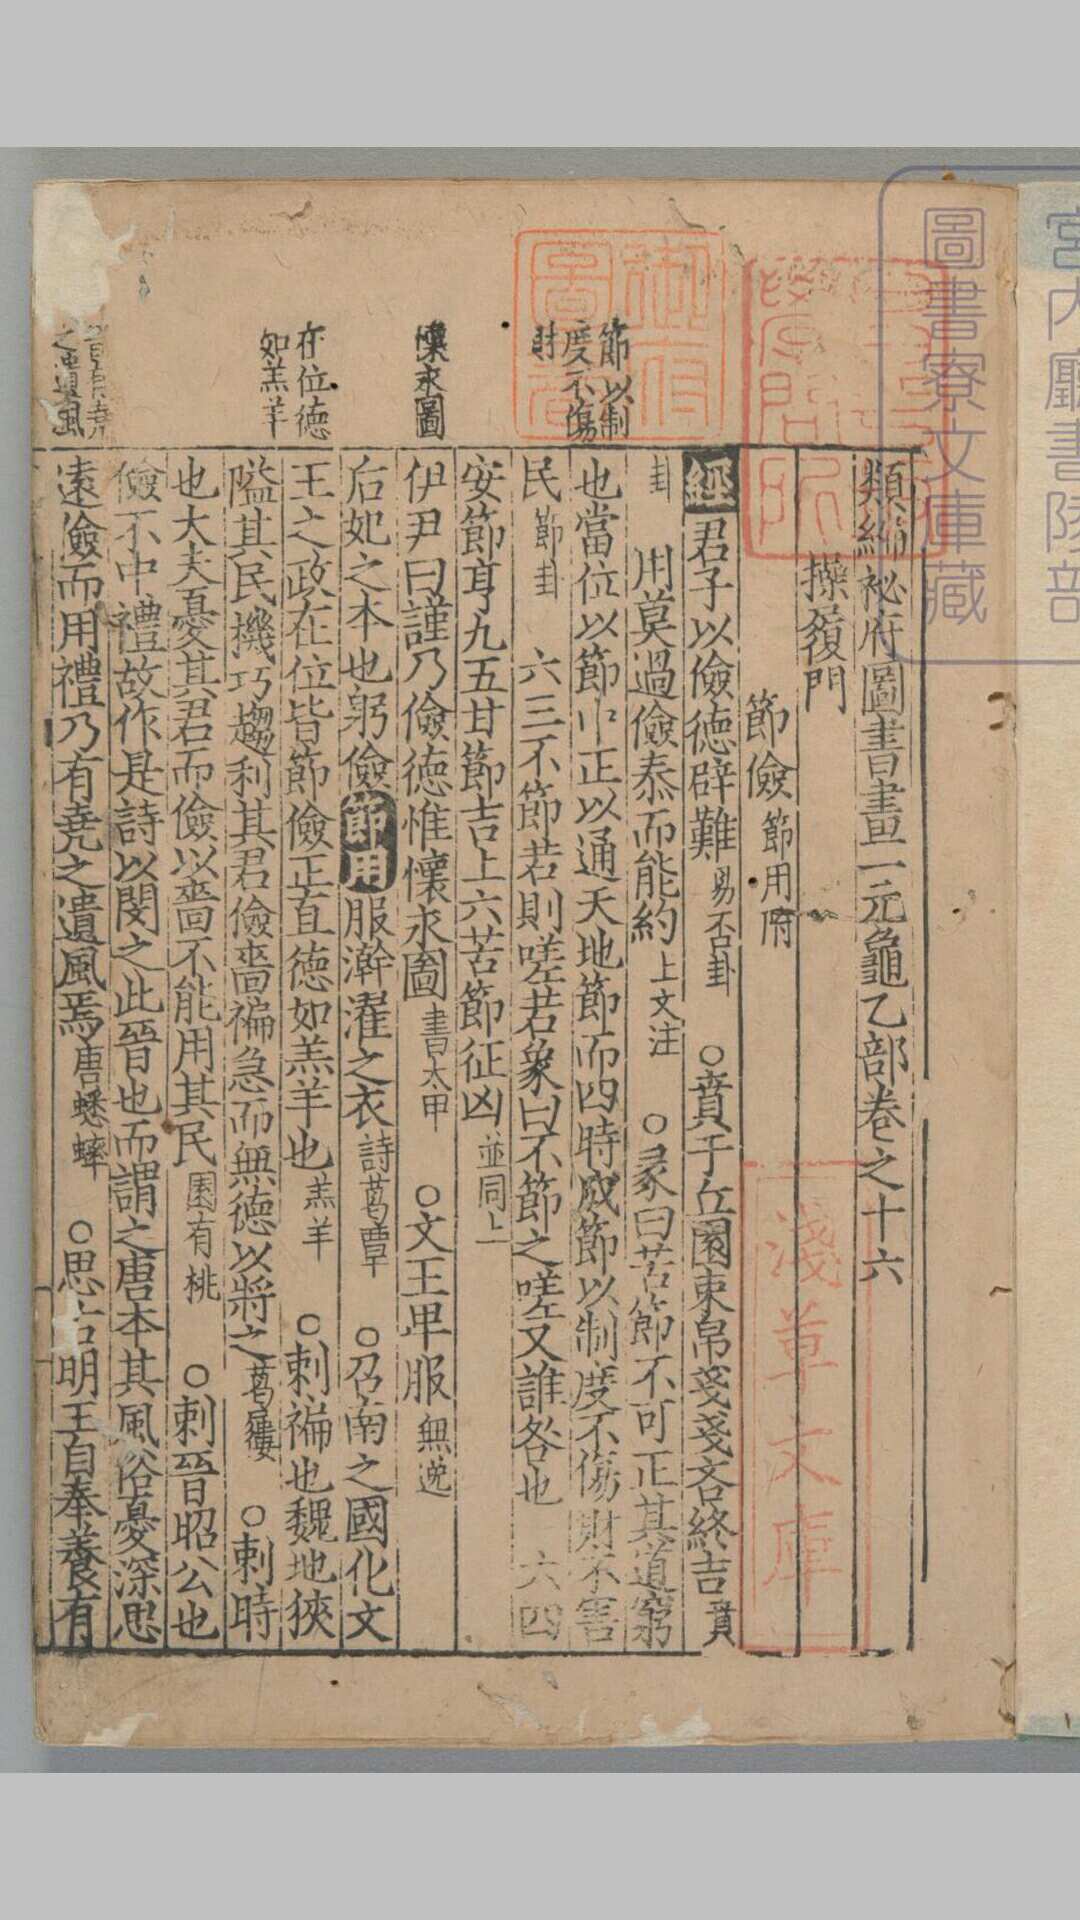 類編祕府圖書畫一元龜乙部卷之十六
操履門
節儉節用附
經君子以儉德辟難易否卦○賁于丘園束帛戔戔吝終吉賁
卦 用莫過儉泰而能約上文注○彖曰苦節不可正其道窮
也當位以節中正以通天地節而四時成節以制度不傷財不害
民節卦 六三不節若則嗟若象曰不節之嗟又誰咎也 六四
安節亨九五甘節吉上六苦節征凶並同上
伊尹曰謹乃儉德惟懷永圖書太甲○文王卑服無逸
后妃之本也躬儉節用服澣濯之衣詩葛覃○召南之國化文
王之政在位皆節儉正直德如羔羊也羔羊○刺褊也魏地狹
隘其民機巧趨利其君儉嗇褊急而無德以將之葛屨○刺時
也大夫憂其君而儉以嗇不能用其民園有桃○刺晉昭公也
儉不中禮故作是詩以閔之此晉也而謂之唐本其風俗憂深思
遠儉而用禮乃有堯之遺風焉唐蟋蟀○思古明王自奉養有
節以制
度不傷
財
懷永圖
在位德
如羔羊
之遺風
御府
圖書
淺草文庫
宮內廳書陵部
圖書寮文庫藏